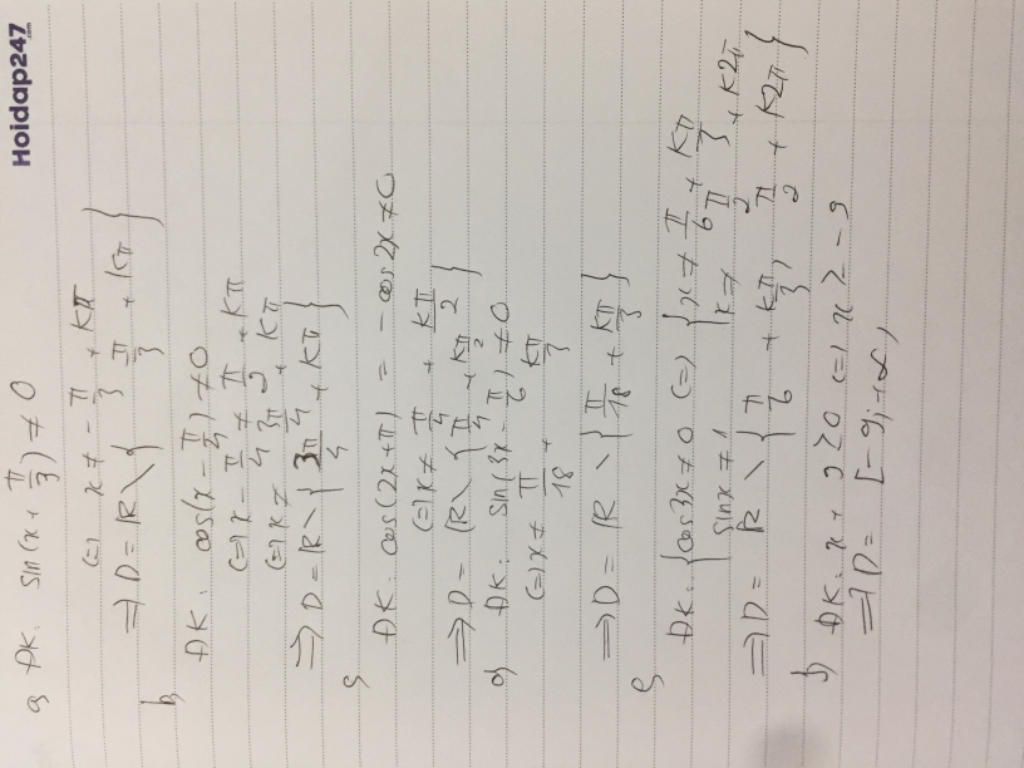 Hoidap247
.com
a, ĐK: sin(x + π/3) ≠ 0
(=) x ≠ -π/3 + Kπ
=> D = R \ { -π/3 + Kπ }
b,
ĐK: cos(x - π/4) ≠ 0
(=) x - π/4 ≠ π/2 + Kπ
(=) x ≠ 3π/4 + Kπ
=> D = R \ { 3π/4 + Kπ }
c,
ĐK: cos(2x + π) = - cos 2x ≠ 0
(=) x ≠ π/4 + Kπ/2
=> D = R \ { π/4 + Kπ/2 }
d) ĐK: sin(3x - π/6) ≠ 0
(=) x ≠ π/18 + Kπ/3
=> D = R \ { π/18 + Kπ/3 }
e,
ĐK: { cos3x ≠ 0 (=) { x ≠ π/6 + Kπ/3
sinx ≠ 1 x ≠ π/2 + K2π
=> D = R \ { π/6 + Kπ/3 , π/2 + K2π }
f)
ĐK: x + 9 ≥ 0 (=) x ≥ -9
=> D = [-9; +∞)